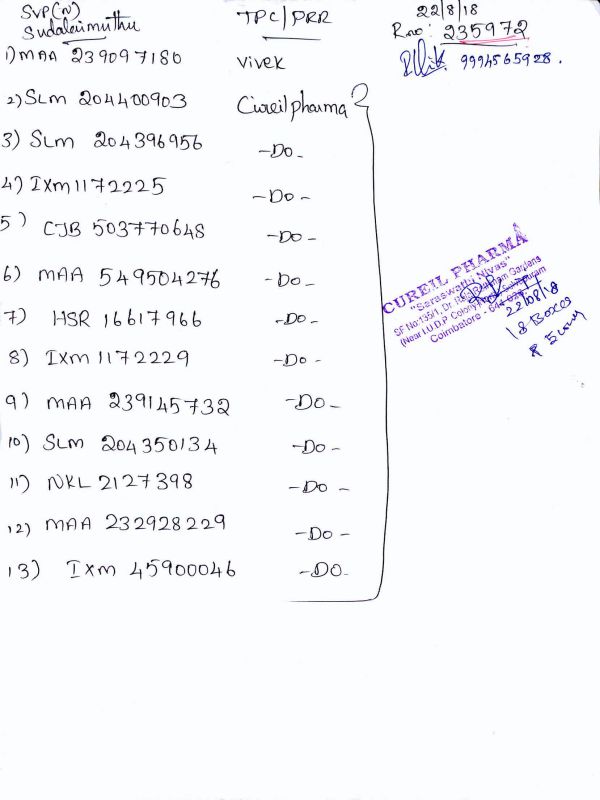 SVP(N) TPC/PRR 22/8/18
Sudaleimuthu R.no: 235972
9994565928.
1) MAA 239097180 Vivek
2) SLM 204400903 Cureil pharma
3) SLM 204396956 -Do-
4) IXM 1172225 -Do-
5) CJB 503770648 -Do-
6) MAA 549504276 -Do-
7) HSR 16617966 -Do-
8) IXM 1172229 -Do-
9) MAA 239145732 -Do-
10) SLM 204350134 -Do-
11) NKL 2127398 -Do-
12) MAA 232928229 -Do-
13) IXM 45900046 -DO-
CUREIL PHARMA
"Saraswathi Nivas"
SF No:135/1, Dr. Gardens
(Near I.U.D.P Colony)
Coimbatore - 641
22/08/18
18 Boxes